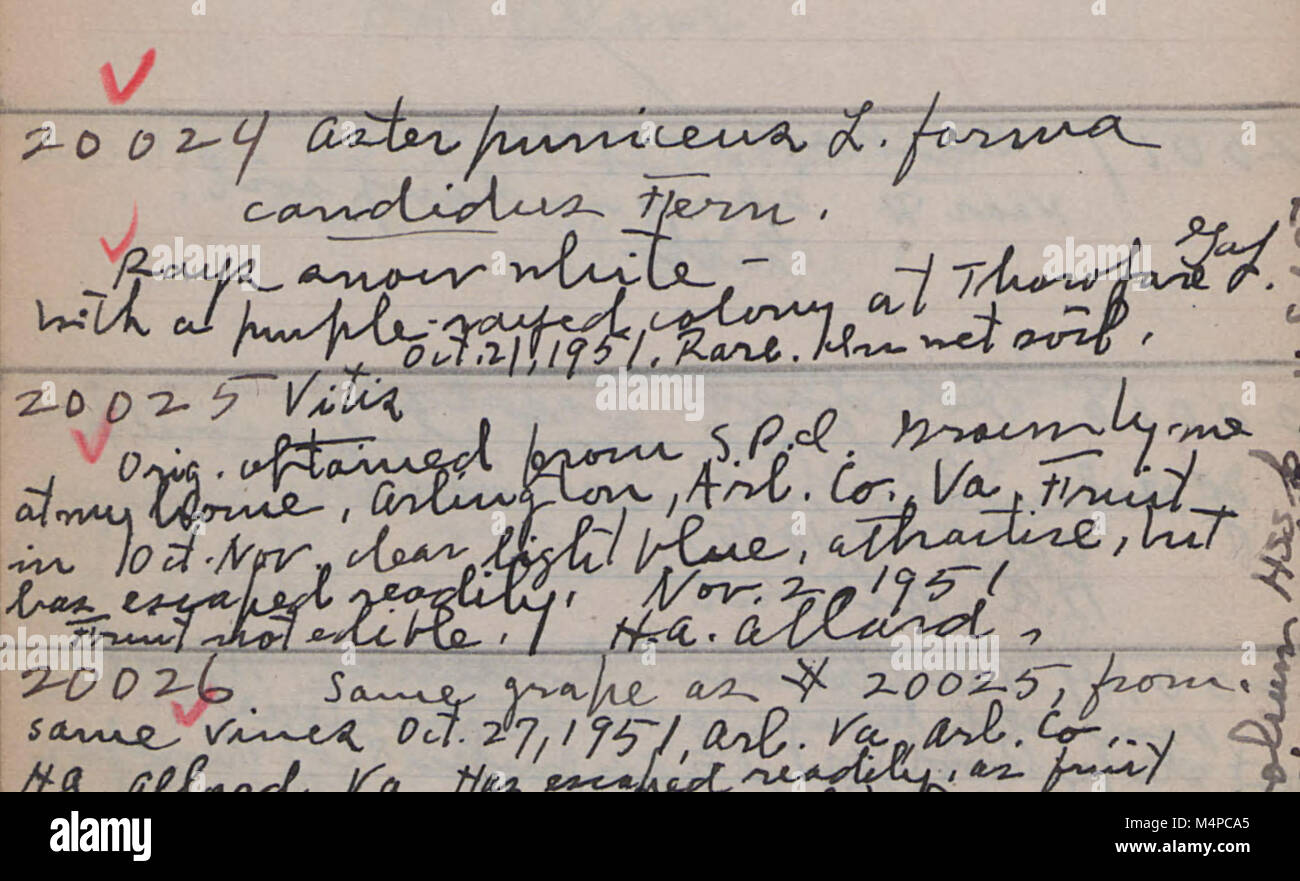 20024 Aster puniceus L. forma
candidus Fern.
Rays snow white -
with a purple-rayed colony at Thorofare Gap.
Oct. 21, 1951. Rare. In wet soil.
20025 Vitis
Orig. obtained from S.P.I. Grown by me
at my home, Arlington, Arl. Co., Va. Fruit
in Oct-Nov. clear light blue, attractive, but
has escaped readily. Nov. 2 1951
Fruit not edible. H.A. Allard.
20026 Same grape as # 20025, from
same vines Oct. 27, 1951, Arl. Va. Arl. Co.,
H.A. Allard, Va. Has escaped readily, as fruit
alamy
Image ID: M4PCA5
www.alamy.com